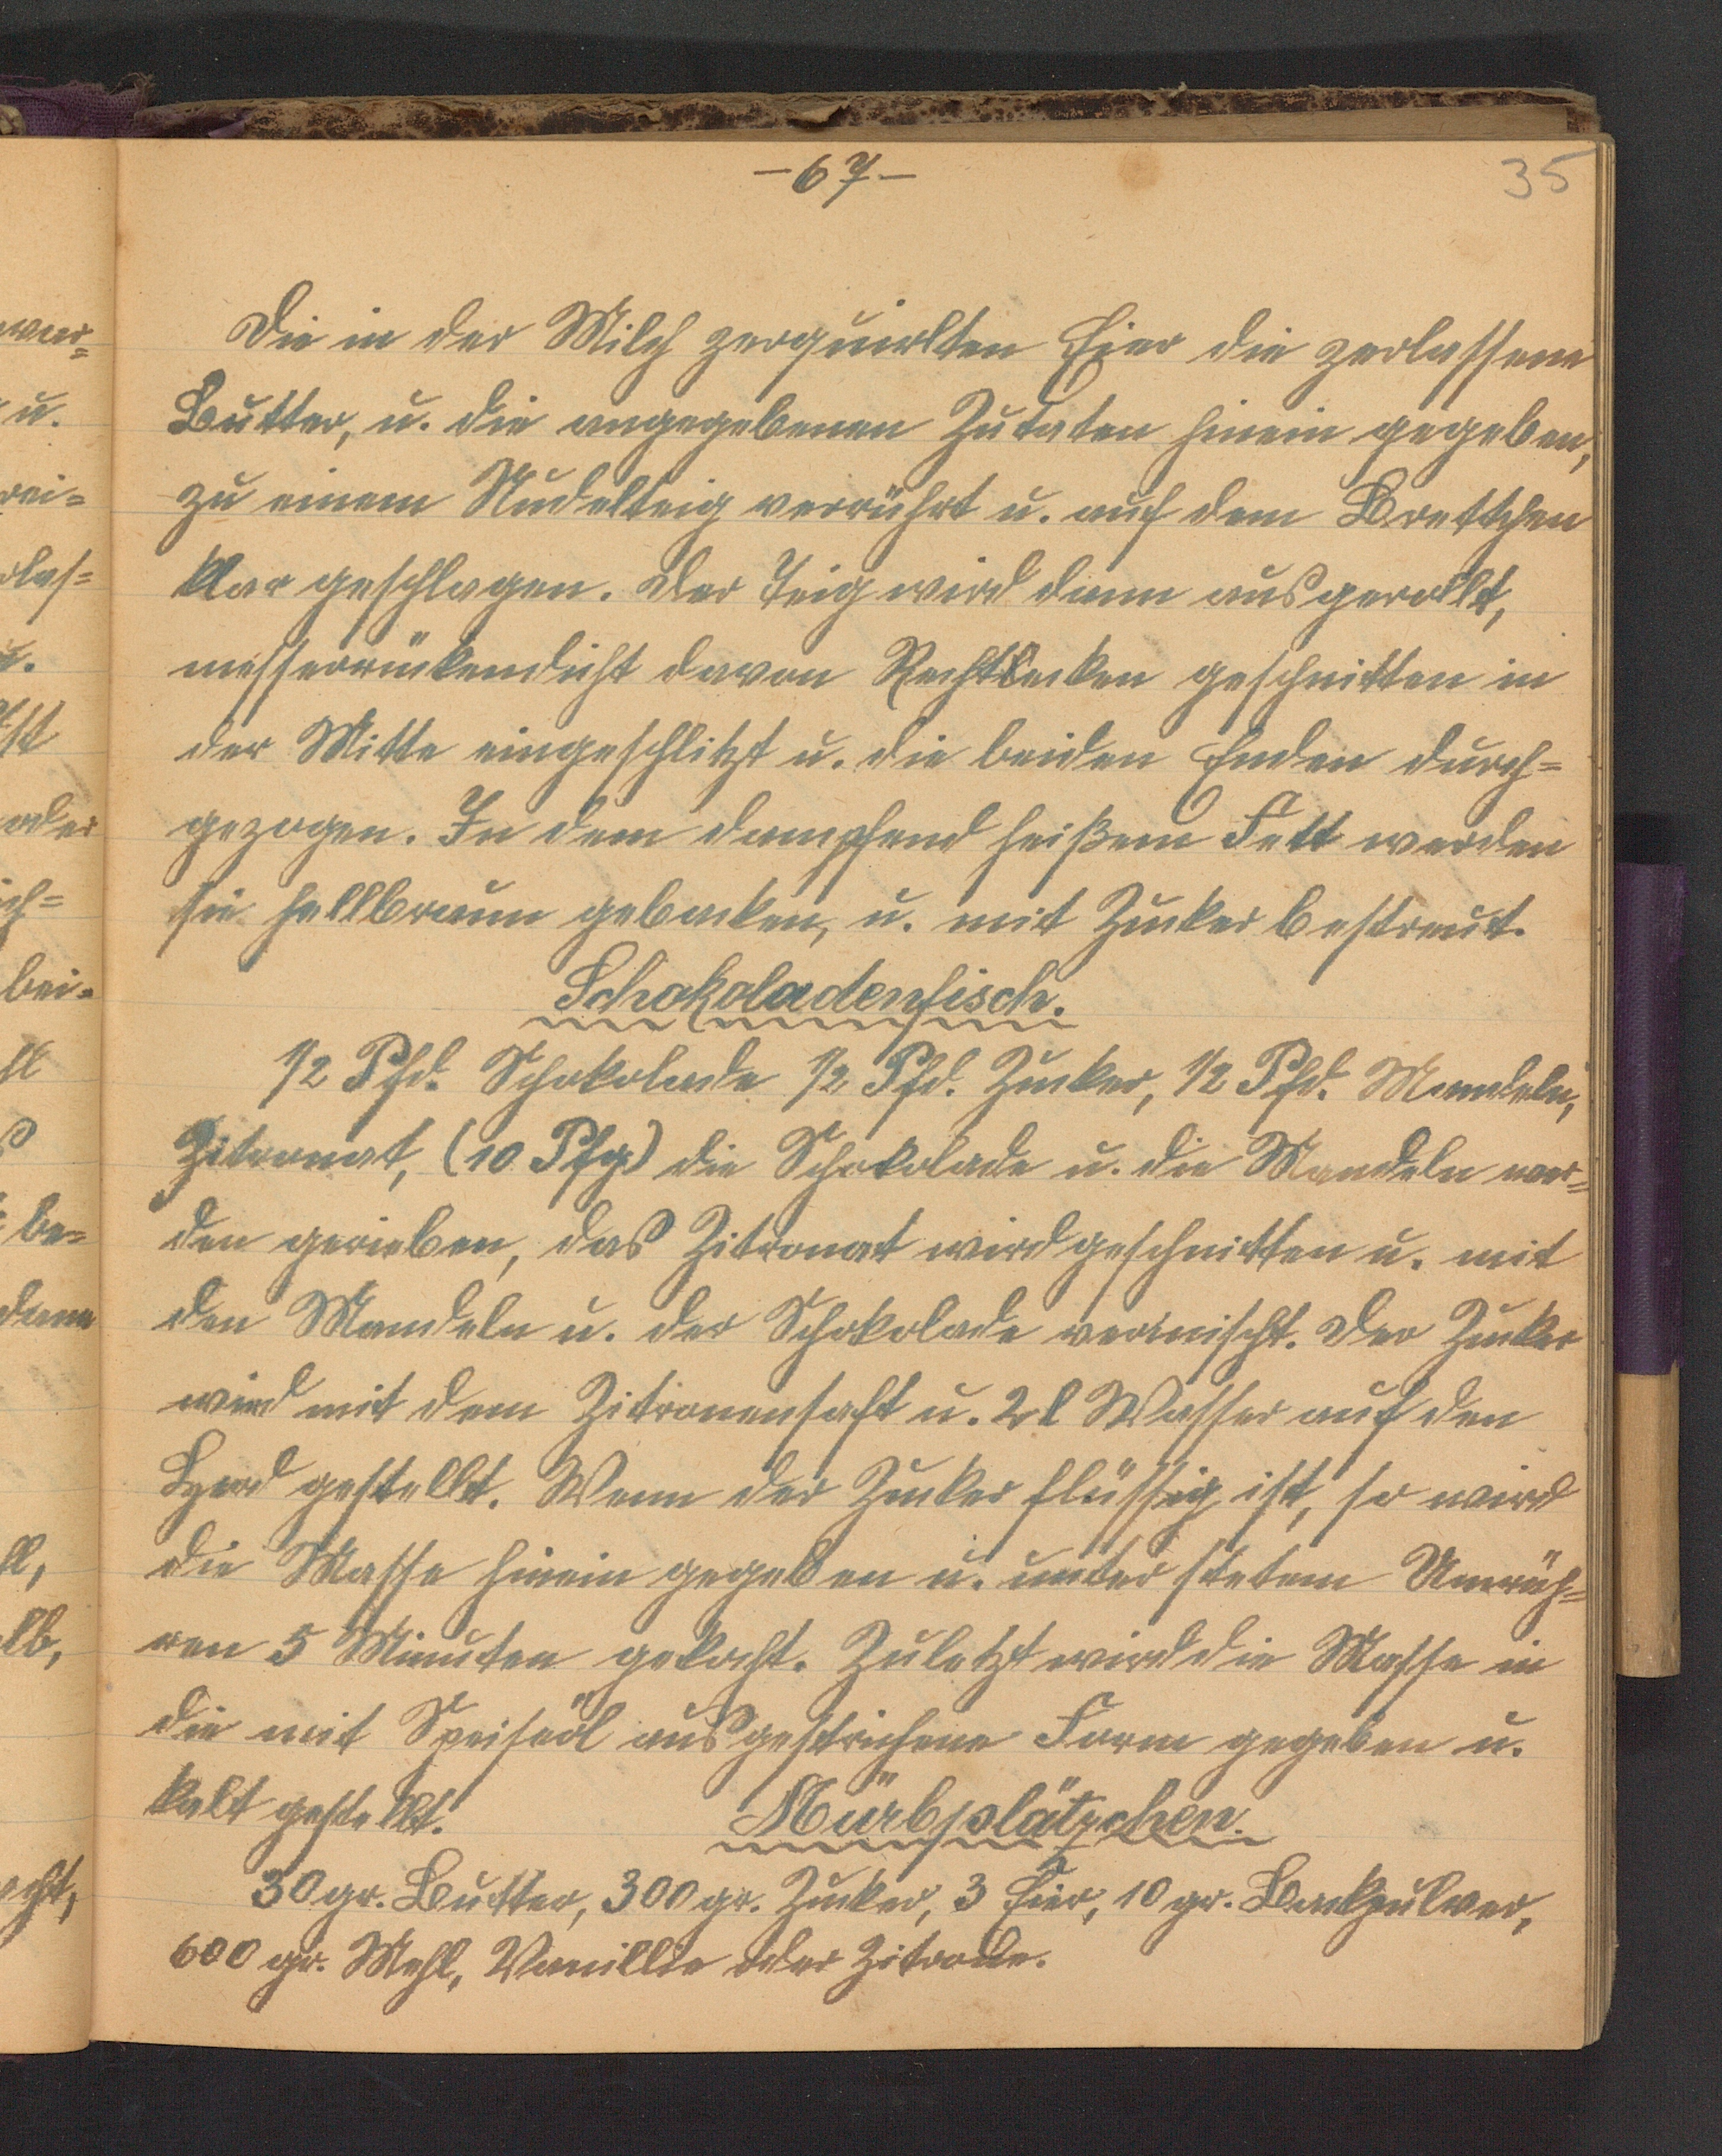 -67-
35
Die in der Milch zerquirlten Eier die zerlassene
Butter, u. die angegebenen Zutaten hinein gegeben,
zu einem Nudelteig verrührt u. auf dem Brettchen
klar geschlagen. Der Teig wird dann ausgerollt,
messerrückendicht davon Rechtecken geschnitten in
der Mitte eingeschlitzt u. die beiden Enden durch=
gezogen. In dem dampfend heißem Fett werden
sie hellbraun gebacken, u. mit Zucker bestreut.
Schokoladenfisch.
1/2 Pfd. Schokolade 1/2 Pfd. Zucker, 1/2 Pfd. Mandeln,
Zitronat, (10 Pfg) die Schokolade u. die Mandeln wer=
den gerieben, das Zitronat wird geschnitten u. mit
den Mandeln u. der Schokolade vermischt. Der Zucker
wird mit dem Zitronensaft u. 2 l Wasser auf den
Herd gestellt. Wenn der Zucker flüssig ist, so wird
die Masse hinein gegeben u. unter stetem Umrüh=
ren 5 Minuten gekocht. Zuletzt wird die Masse in
die mit Speiseöl ausgestrichene Form gegeben u.
kalt gestellt.
Mürbplätzchen.
30 gr. Butter, 300 gr. Zucker, 3 Eier, 10 gr. Backpulver,
600 gr. Mehl, Vanillie oder